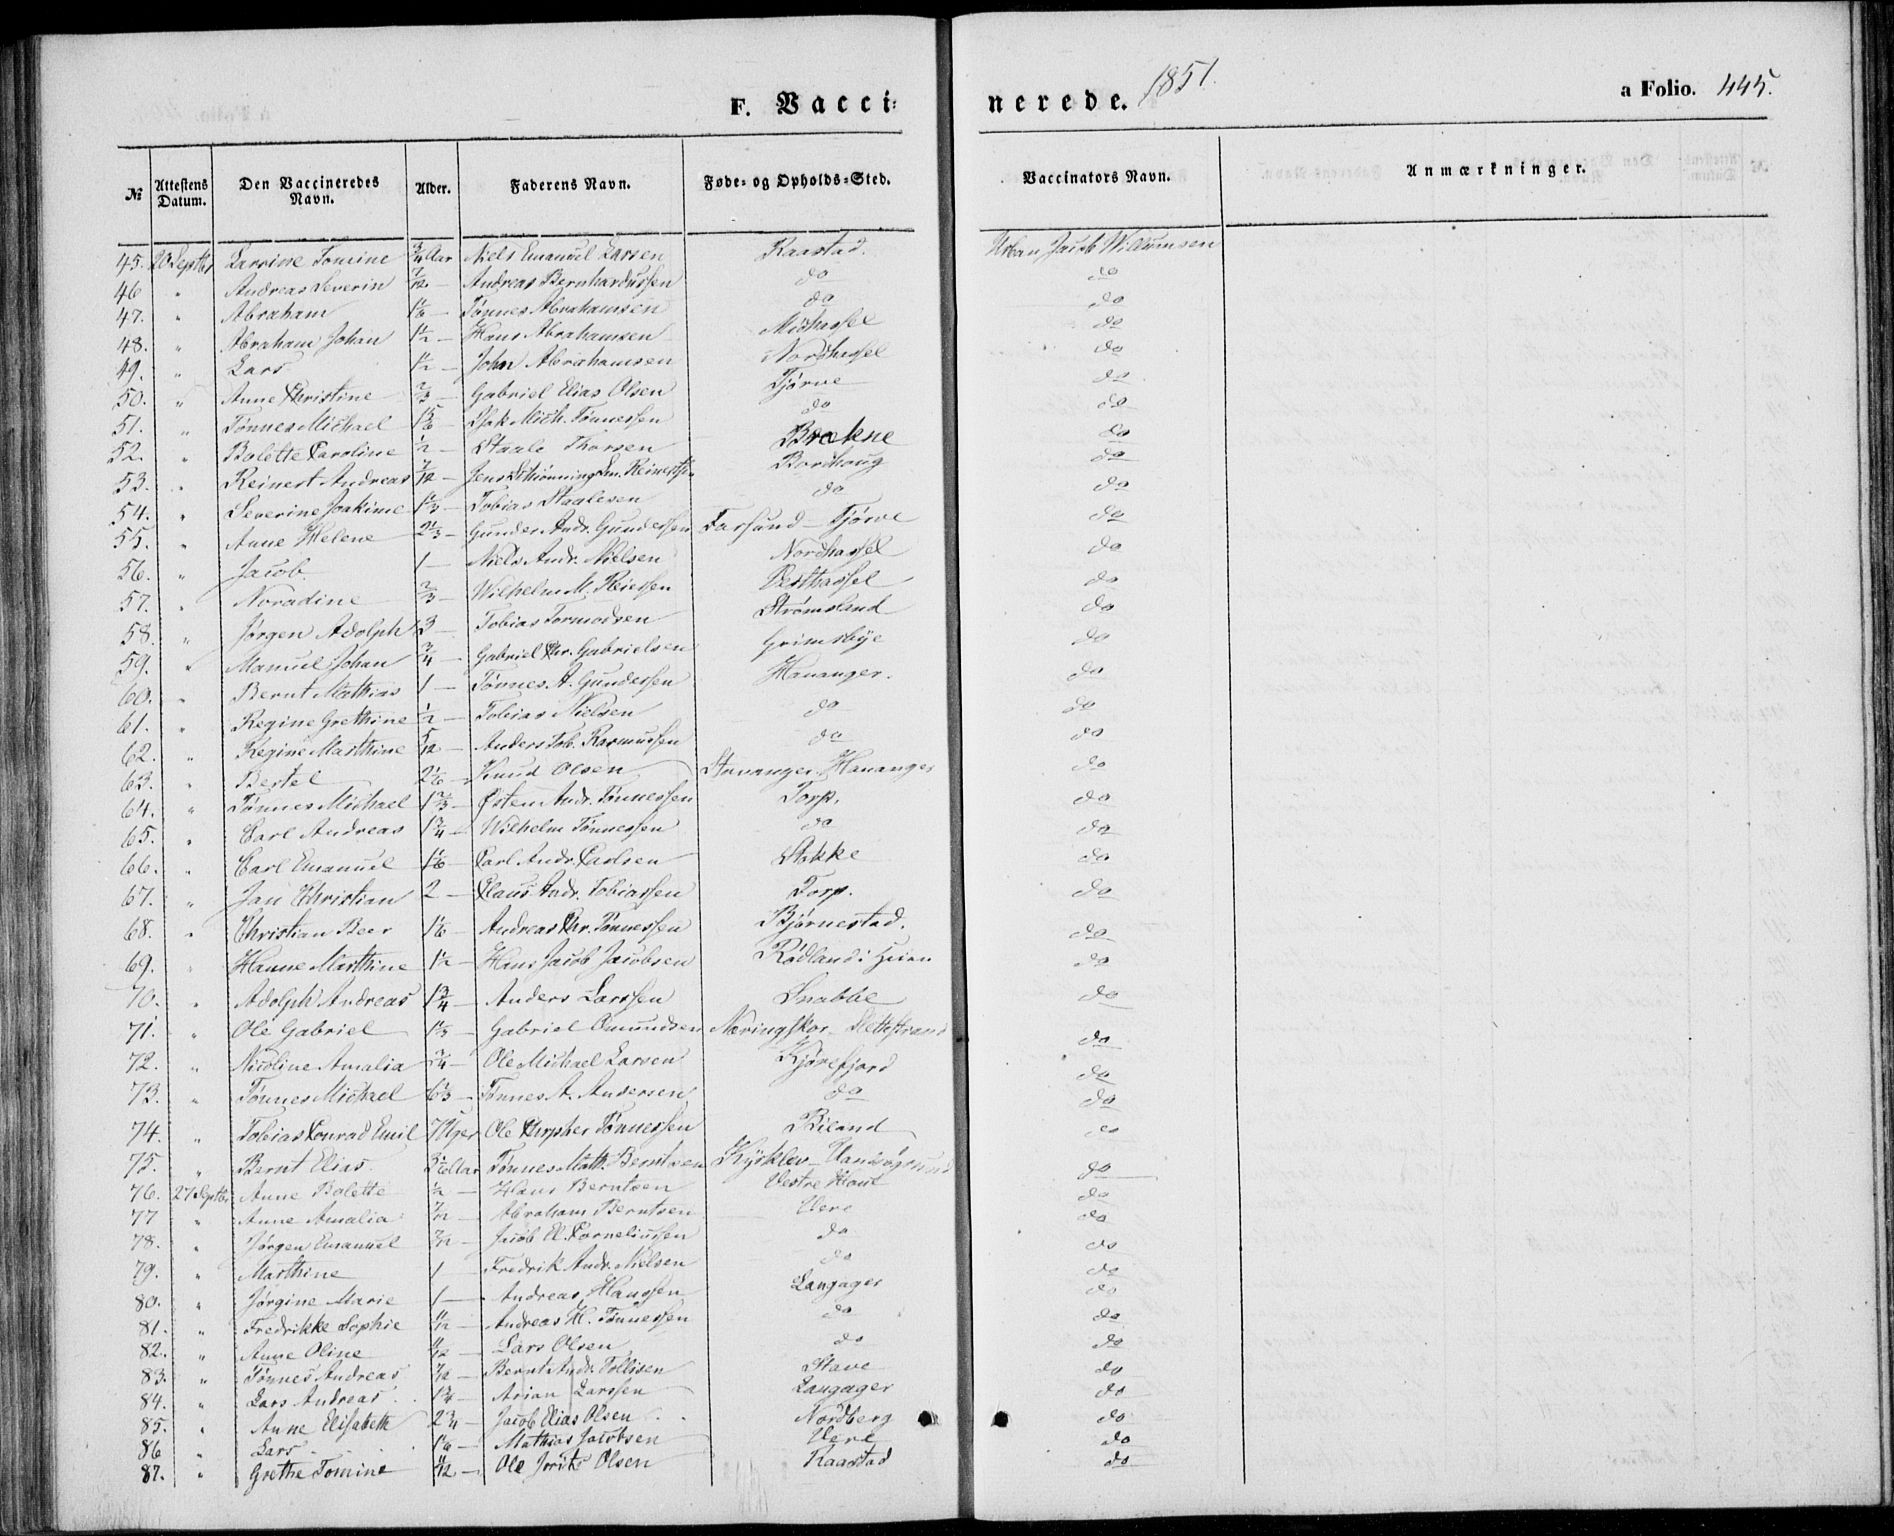 F. Vacci=
nerede. 1851.
a Folio. 445.
№ Attestens Datum. Den Vaccineredes Navn. Alder. Faderens Navn. Føde= og Opholds=Sted. Vaccinators Navn. Anmærkninger.
45. 20 Septbr Larsine Tomine 3/4 Aar Niels Emanuel Larsen Raastad. Urban Jacob Willumsen
46 " Andreas Severin 7/12 — Andreas Bernhardussen do do
47. " Abraham 1 1/6 — Tønnes Abrahamsen do do
48. " Abraham Johan 1 1/2 — Hans Abrahamsen Midhassel do
49. " Lars 1 1/2 — John Abrahamsen Nordhassel do
50. " Anne Christine 2/3 — Gabriel Elias Olsen Tjørve do
51. " Tønnes Michael 1 5/6 — Isak Mich. Tønnessen do do
52. " Bolette Caroline 1/2 — Staale Thorsen Brekne do
53. " Reinert Andreas 7/12 — Jens Reinertsen Bordhoug do
54. " Severine Joakime 1 1/3 — Tobias Staalesen do do
55. " Anne Helene 2 2/3 — Gunder Andr. Gundersen Farsund — Tjørve do
56. " Jacob 1 — Niels Andr. Nielsen Nordhassel do
57. " Noradine 2/3 — Wilhelm M. Reiersen Vesthassel do
58. " Jørgen Adolph 3 — Tobias Tormodsen Strømsland do
59. " Manuel Johan 3/4 — Gabriel Chr. Gabrielsen Grimsbye do
60. " Bernt Mathias 1 — Tønnes A. Gundersen Hananger. do
61. " Regine Grethine 1/2 — Tobias Nielsen do do
62. " Regine Marthine 5/12 — Anders Tob. Rasmussen do do
63. " Bertel 2 1/6 — Knud Olsen Stavanger Hananger do
64. " Tønnes Michael 1 2/3 — Østen Andr. Tønnessen Torp. do
65. " Carl Andreas 1 3/4 — Wilhelm Tønnessen do do
66. " Carl Emanuel 1 1/6 — Carl Andr. Carlsen Stokke do
67. " Jan Christian 2 — Claus Andr. Tobiassen Torp. do
68. " Christian Beer 1 1/6 — Andreas Chr. Tønnessen Bjørnestad. do
69. " Hanne Marthine 1 1/2 — Hans Jacob Jacobsen Rødland i do
70. " Adolph Andreas 1 3/4 — Anders Larssen Snabbe do
71. " Ole Gabriel 1 1/3 — Gabriel Omundsen Næringskor — Slettestrand do
72. " Nicoline Amalia 3/4 — Ole Michael Larsen Kjørefjord do
73. " Tønnes Michael 6 1/3 — Tønnes A. Andersen do do
74. " Tobias Conrad Emil 7 Uger Ole Chrpher Tønnessen Biland do
75. " Bernt Elias. Aar Tønnes Math. Berntsen do
76. 27 Septbr. Anne Bolette 1/2 — Hans Berntsen Vestre Hout do
77 " Anne Amalia 7/12 — Abraham Berntsen Vere do
78. " Jørgen Emanuel 7/12 — Jacob El. Corneliussen do do
79. " Marthine 1 — Fredrik Andr. Nielsen do do
80. " Jørgine Marie 1 — Andreas Hanssen Langager do
81. " Fredrikke Sophie 11/12 — Andreas H. Tønnessen do do
82. " Anne Oline 11/12 — Lars Olsen do do
83. " Tønnes Andreas 7/12 — Bernt Andr. Tollisen Stave do
84. " Lars Andreas 1 3/4 — Arian Larssen Langager do
85. " Anne Elisabeth 2 3/4 — Jacob Elias Olsen Nordberg do
86 " Lars 1 1/6 — Mathias Jacobsen Vere do
87. " Grethe Tomine 11/12 — Ole Olsen Raastad do